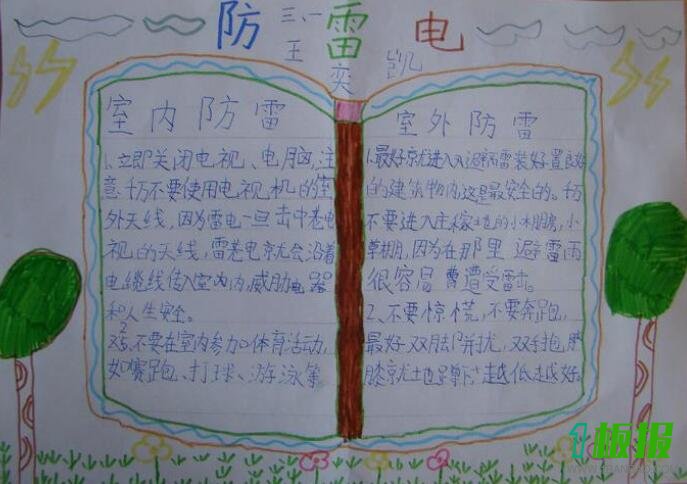 防雷电
三、一
王奕凯
室内防雷
1、立即关闭电视、电脑,注
意千万不要使用电视机的室
外天线,因为雷电一旦击中电
视的天线,雷电就会沿着
电缆线传入室内,威胁电器
和人生安全。
2、不要在室内参加体育活动,
如赛跑、打球、游泳等
室外防雷
1、最好就进入避雷装置良好
的建筑物内,这是最安全的。千万
不要进入庄稼地的小棚房,小
草棚,因为在那里避雷雨
很容易遭受雷击。
2、不要惊慌,不要奔跑,
最好双脚并拢,双手抱膝
膝就地蹲下越低越好。
板报